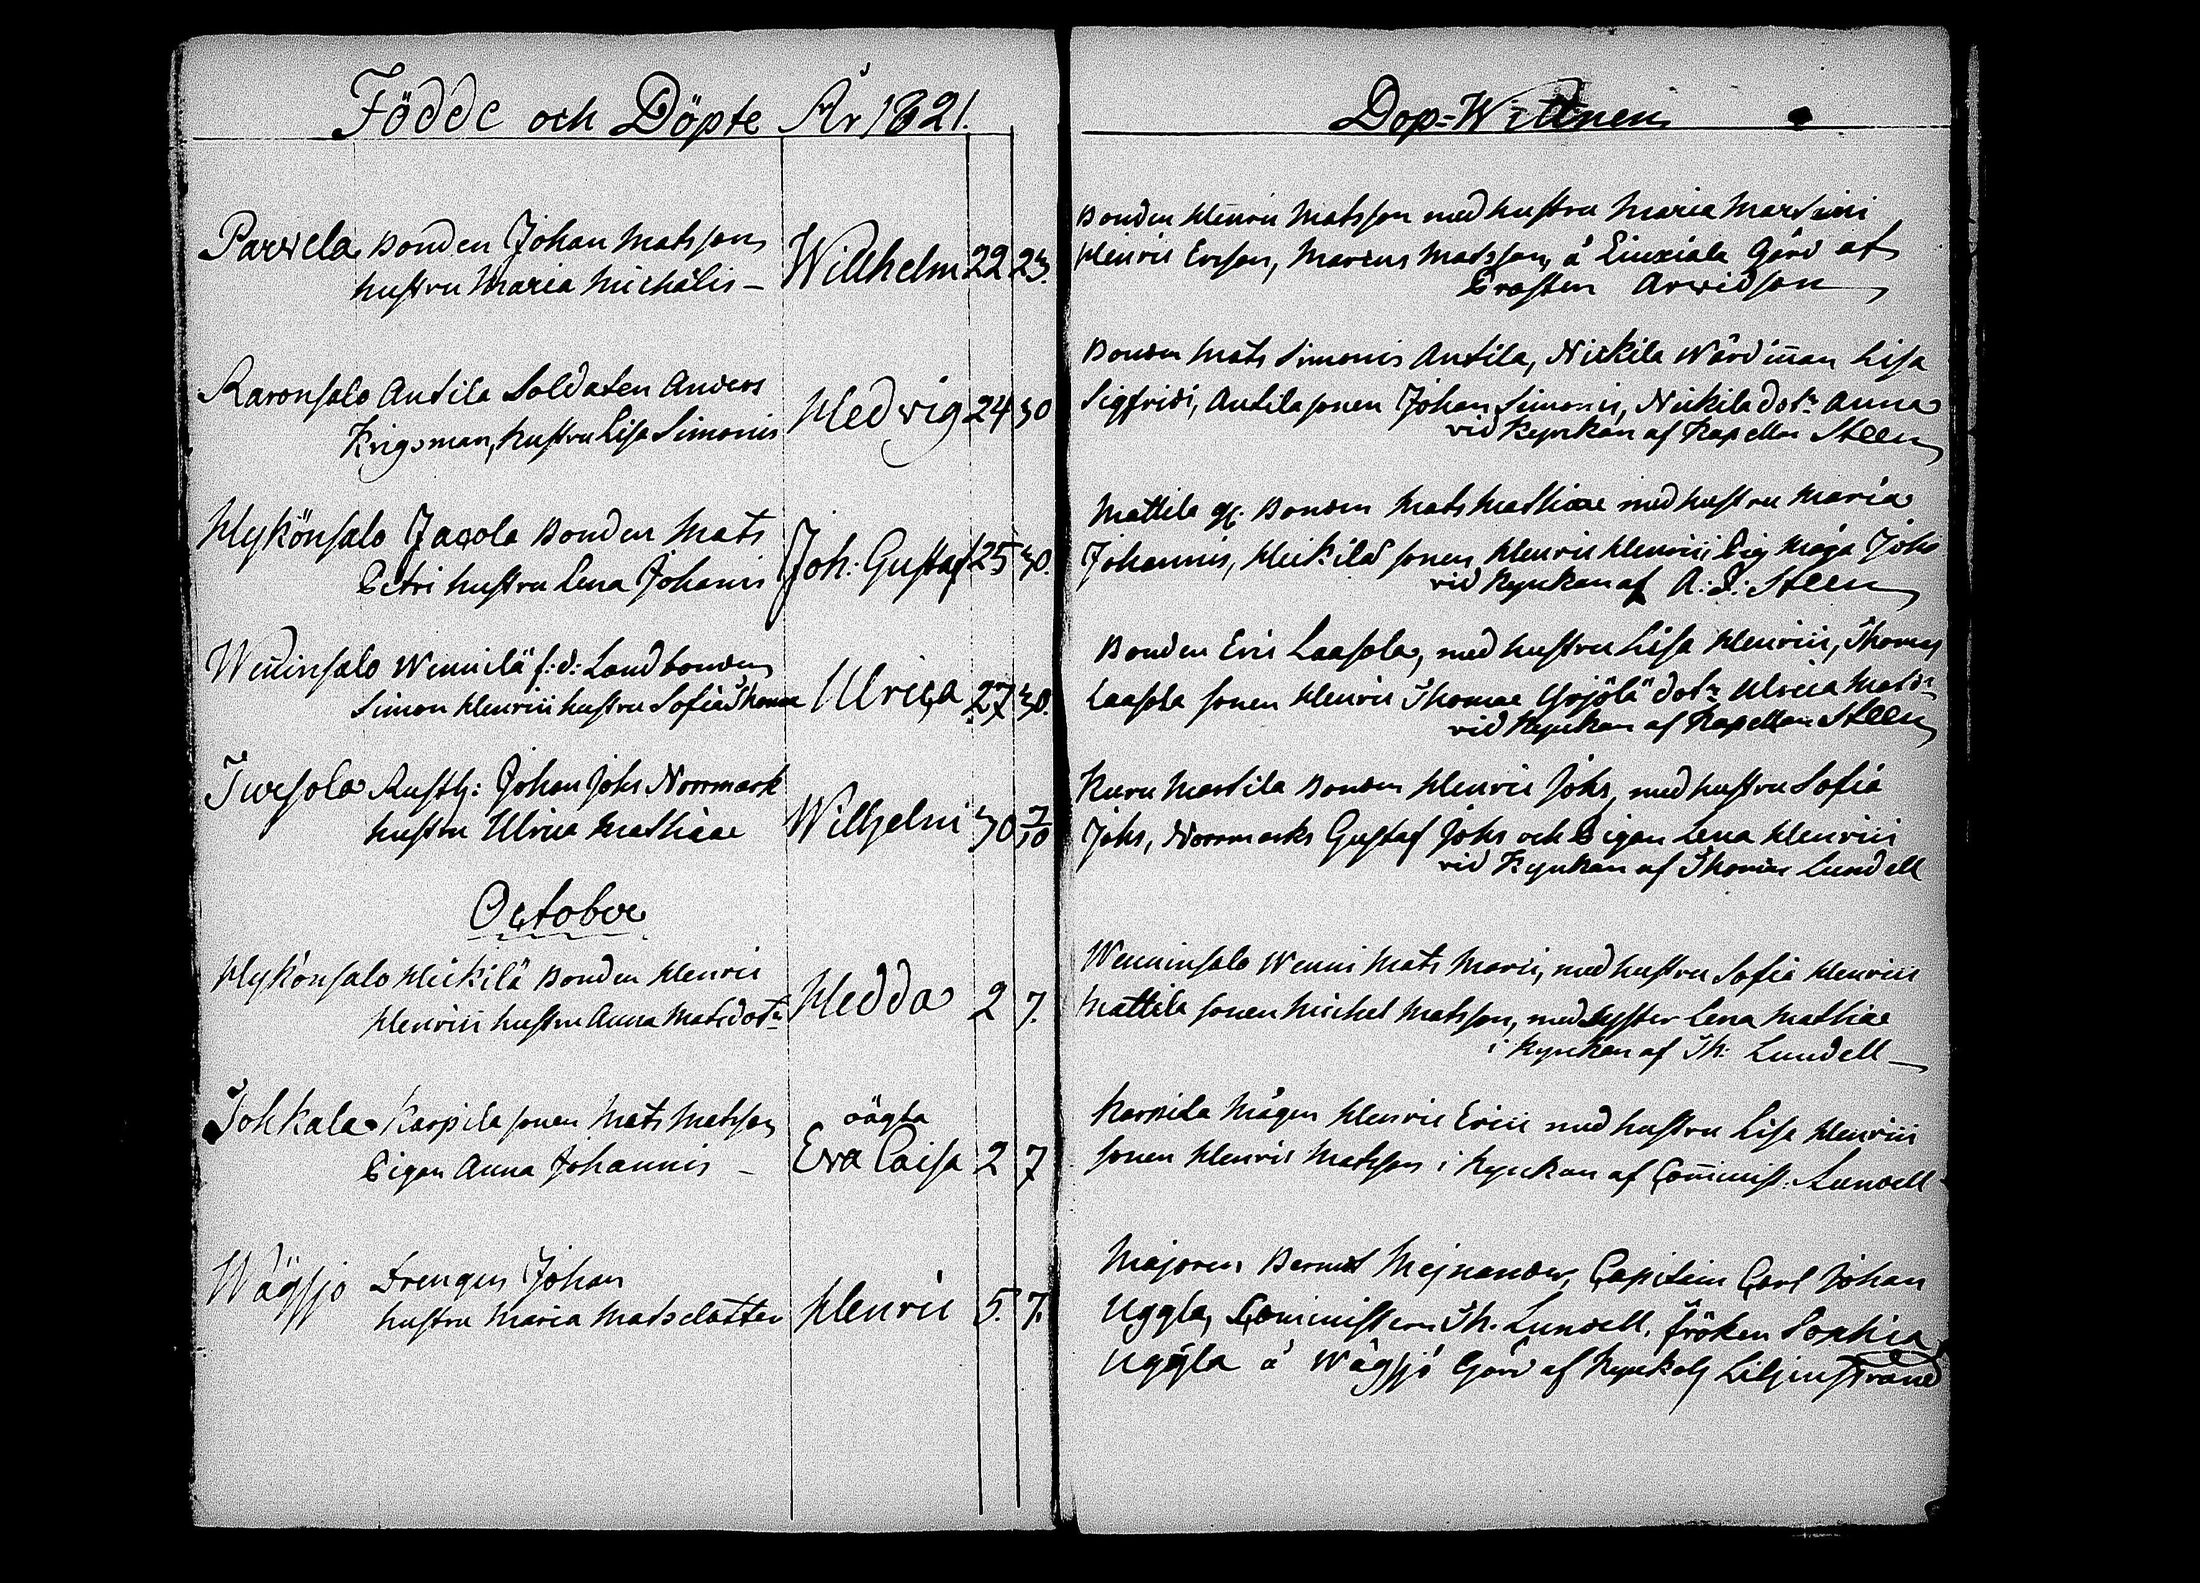 Födde och Döpte År 1821.
Parvela Bonden Johan Matsson
hustru Maria Michälis –
Willhelm 22 23.
Karonsalo Antila Soldaten Anders
Krigsman, hustru Lisa Simonis
Hedvig 24 30
Hykönsalo Jacola Bonden Mats
Petri hustru Lena Johanis
Joh: Gustaf 25 30.
Wenninsalo Wennilä f:d: Landbonden
Simon Henrici hustru Sofia Thomae
Ulrica 27 30.
Iwesola Rusth: Johan Johs Norrmark
hustru Ulrica Mathiae
Wilhelmi 30 7/10
October
Hykönsalo Heikilä Bonden Henric
Henrici hustru Anna Matsdotr
Hedda 2 7.
Tohkala Karpila sonen Mats Matsson
Pigan Anna Johannis –
oägta
Eva Caisa 2 7
Wågsjö Drengen Johan
hustru Maria Matsdotter
Henric 5. 7.
Dop=Wittnen
Bonden Henric Matsson med hustru Maria Martini
Henric Ericson, Marcus Matsson, å Gård af
Prosten Arvidson
Bonden Mats Simonis Antila, Nickila Wärdinnan Lisa
Sigfridi, Antila sonen Johan Simonis, Nickila dotr Anna
vid Kyrkan af Kapellan Steen
Mattila Bonden Mats Mathiae med hustru Maria
Johannis, Heikilä sonen Henric Henrici Pig Maja Johs
vid Kyrkan af A: J: Steen
Bonden Eric Laasola, med hustru Lisa Henrici, Thomas
Laasola sonen Henric Thomae Yrjölä dotr Ulrica Matsdr
vid Kyrkan af Kapellan Steen
Kuru Martila Bonden Henric Johs, med hustru Sofia
Johs, Norrmarks Gustaf Johs och Pigan Lena Henrici
vid Kyrkan af Thomas Lundell
Wenninsalo Wenni Mats Marci, med hustru Sofia Henrici
Mattila sonen Michel Matsson, med syster Lena Mathiae
i Kyrkan af Th: Lundell
Karpila Mågen Henric Erici med hustru Lisa Henrici
sonen Henric Matsson i Kyrkan af Com̄minist: Lundell
Majoren Berndt Mejnander, Capitain Carl Johan
Uggla, Comministern Th. Lundell, Fröken Sophia
Uggla å Wågsjö Gård af Kyrkoh Liljenstrand